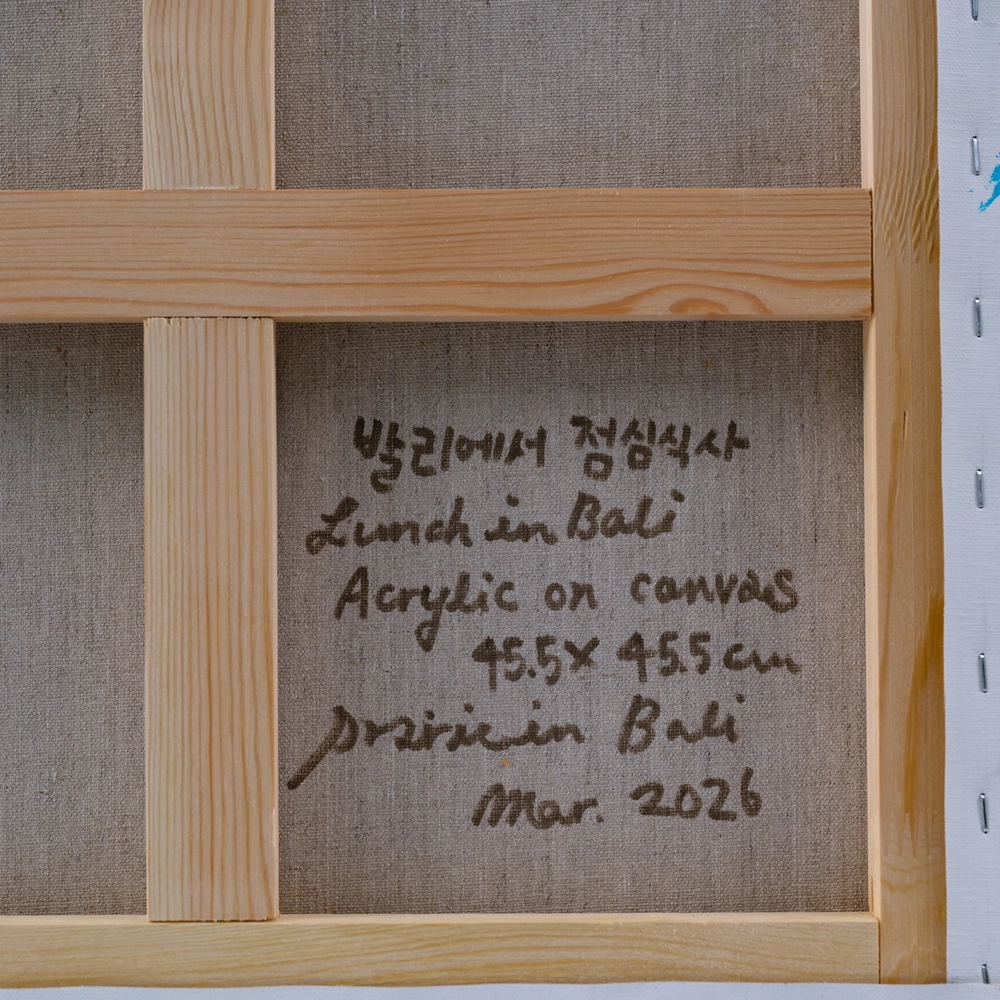 발리에서 점심식사
Lunch in Bali
Acrylic on canvas
45.5 x 45.5 cm
Prairie in Bali
Mar. 2026